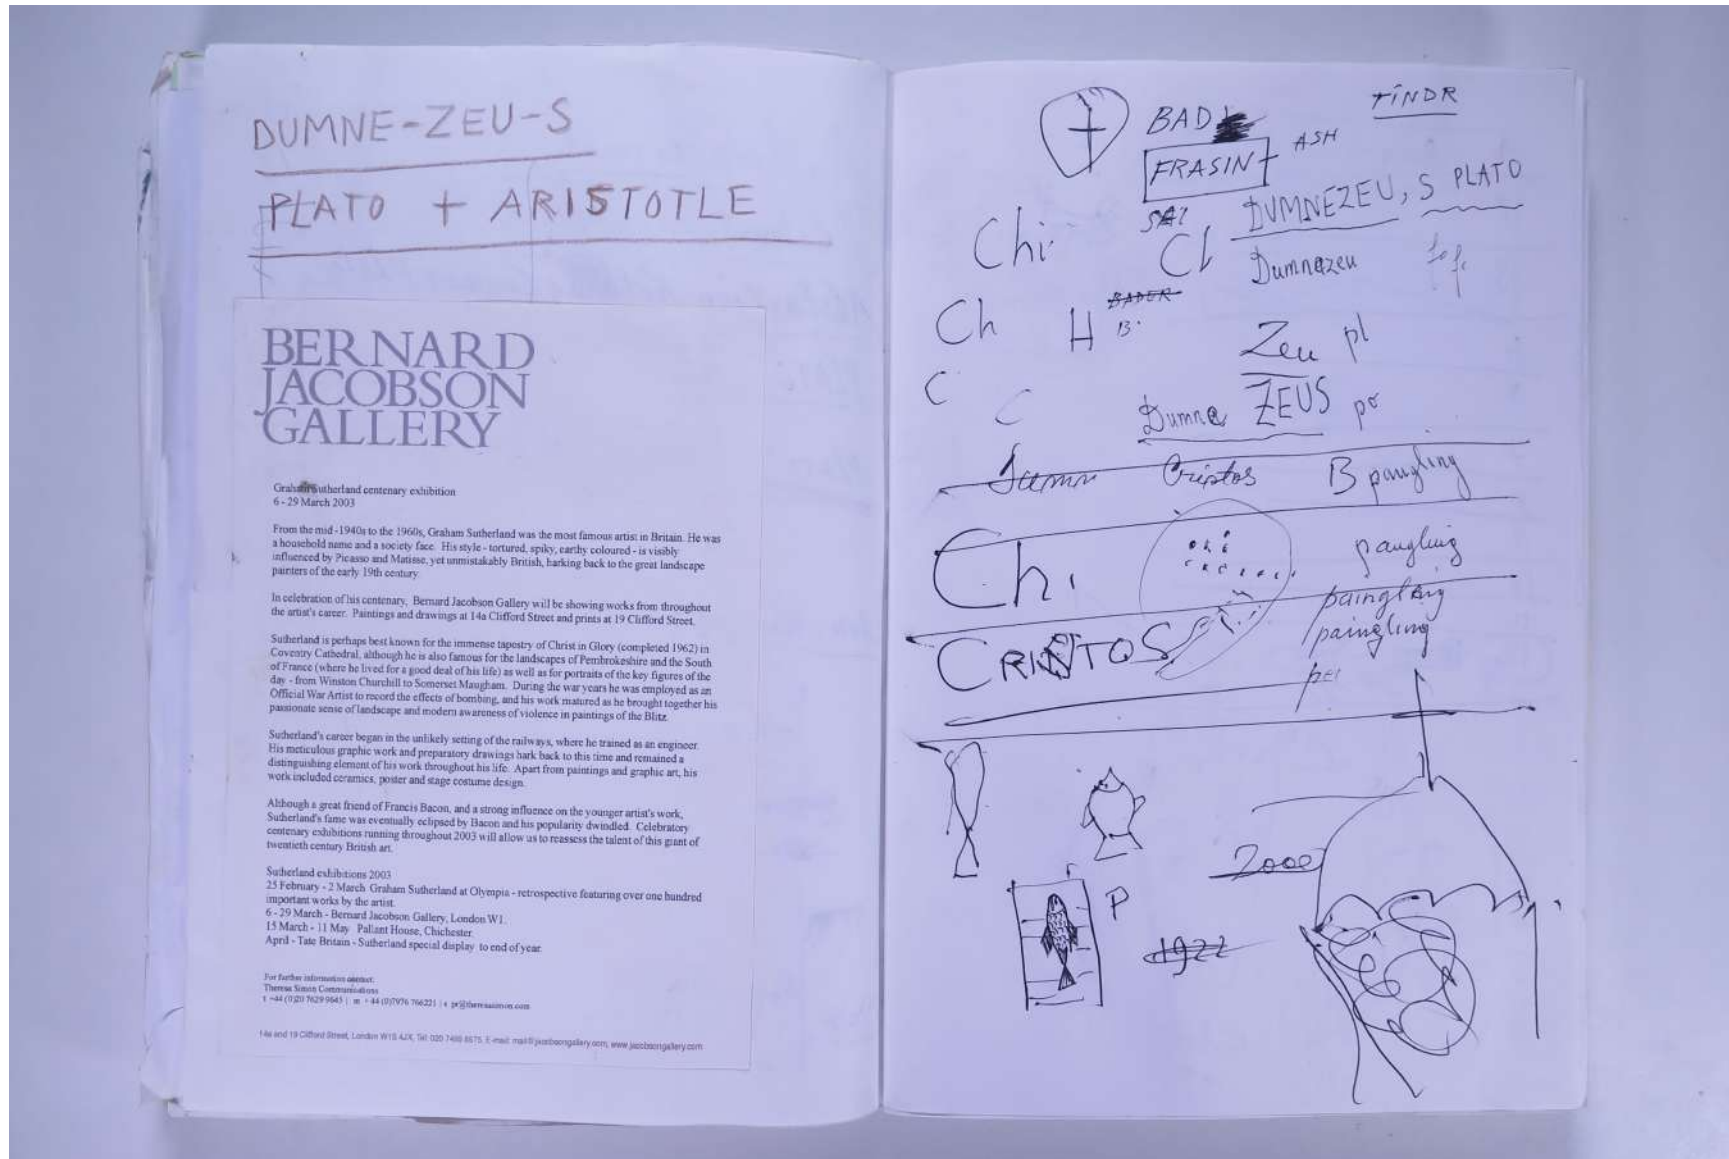 DUMNE-ZEU-S
PLATO + ARISTOTLE
BERNARD
JACOBSON
GALLERY
Graham Sutherland centenary exhibition
6 - 29 March 2003
From the mid -1940s to the 1960s, Graham Sutherland was the most famous artist in Britain. He was
a household name and a society face. His style - tortured, spiky, earthy coloured - is visibly
influenced by Picasso and Matisse, yet unmistakably British, harking back to the great landscape
painters of the early 19th century.
In celebration of his centenary, Bernard Jacobson Gallery will be showing works from throughout
the artist's career. Paintings and drawings at 14a Clifford Street and prints at 19 Clifford Street.
Sutherland is perhaps best known for the immense tapestry of Christ in Glory (completed 1962) in
Coventry Cathedral, although he is also famous for the landscapes of Pembrokeshire and the South
of France (where he lived for a good deal of his life) as well as for portraits of the key figures of the
day - from Winston Churchill to Somerset Maugham. During the war years he was employed as an
Official War Artist to record the effects of bombing, and his work matured as he brought together his
passionate sense of landscape and modern awareness of violence in paintings of the Blitz.
Sutherland's career began in the unlikely setting of the railways, where he trained as an engineer.
His meticulous graphic work and preparatory drawings hark back to this time and remained a
distinguishing element of his work throughout his life. Apart from paintings and graphic art, his
work included ceramics, poster and stage costume design.
Although a great friend of Francis Bacon, and a strong influence on the younger artist's work,
Sutherland's fame was eventually eclipsed by Bacon and his popularity dwindled. Celebratory
centenary exhibitions running throughout 2003 will allow us to reassess the talent of this giant of
twentieth century British art.
Sutherland exhibitions 2003
25 February - 2 March Graham Sutherland at Olympia - retrospective featuring over one hundred
important works by the artist.
6 - 29 March - Bernard Jacobson Gallery, London W1.
15 March - 11 May Pallant House, Chichester.
April - Tate Britain - Sutherland special display to end of year.
For further information contact:
Theresa Simon Communications
14a and 19 Clifford Street, London W1S 4JX, Tel: 020 7495 8575, E-mail: mail@jacobsongallery.com, www.jacobsongallery.com
TINDR
BAD
FRASIN ASH
DUMNEZEU, S PLATO
Chi Cl Dumnezeu
Ch H BADER
B.
Zeu pl
C C Dumne ZEUS po
Criptos B pangling
Chi pangling
paingling
paingling
CRISTOS
2000
P
1922